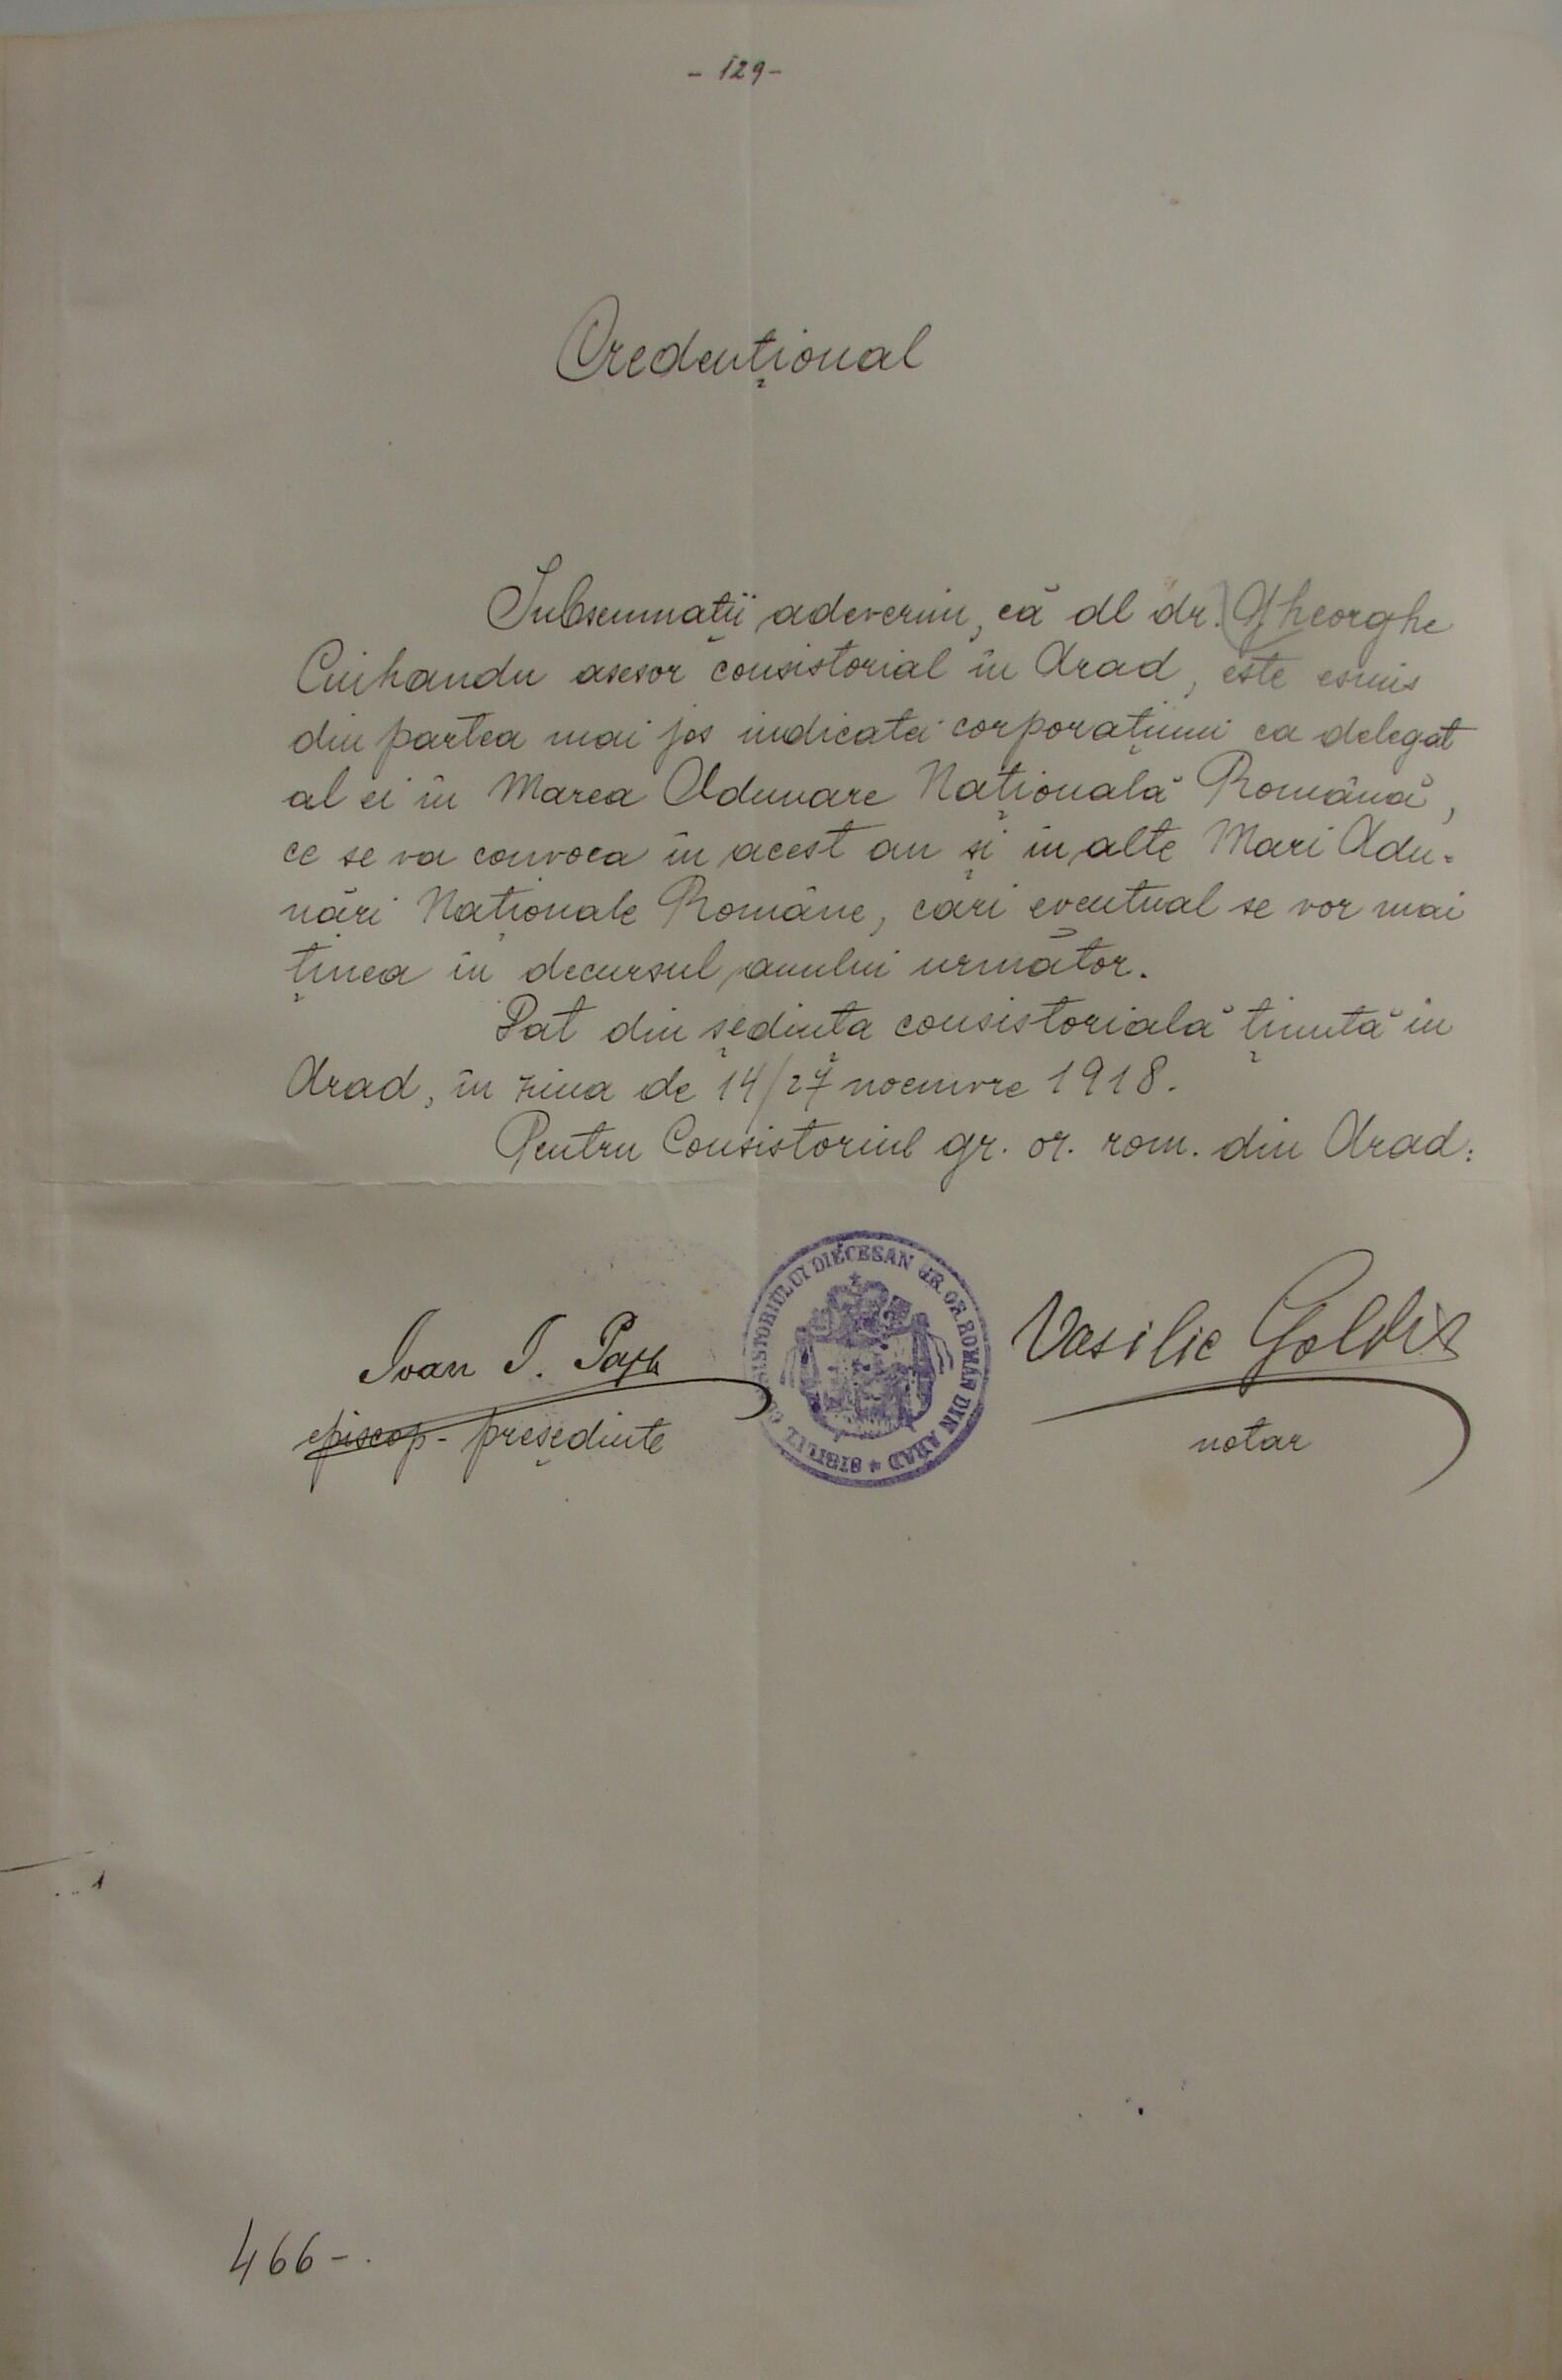 - 129 -
Credențional
Subsemnații adeverim, că dl dr. Gheorghe
Ciuhandu asesor consistorial în Arad, este esmis
din partea mai jos indicatei corporațiuni ca delegat
al ei în Marea Adunare Națională Română,
ce se va convoca în acest an și în alte Mari Adu-
nări Naționale Române, cari eventual se vor mai
ținea în decursul anului următor.
Dat din ședința consistorială ținută în
Arad, în ziua de 14/27 noemvre 1918.
Pentru Consistoriul gr. or. rom. din Arad:
SIGILUL CONSISTORIULUI DIECESAN GR. OR. ROMÂN DIN ARAD
Ioan I. Papp
Vasilie Goldiș
episcop - președinte
notar
466 - .